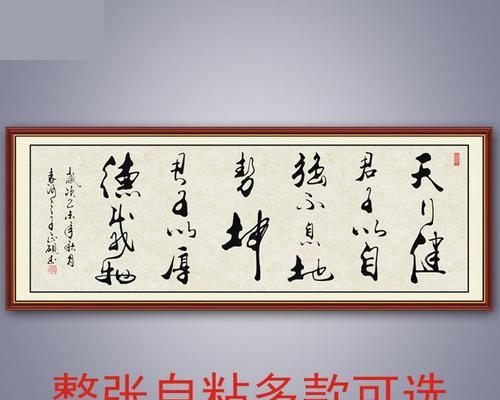 天行健
君子以自
強不息地
勢坤
君子以厚
德載物
歲次乙未年秋月
整张自粘多款可选